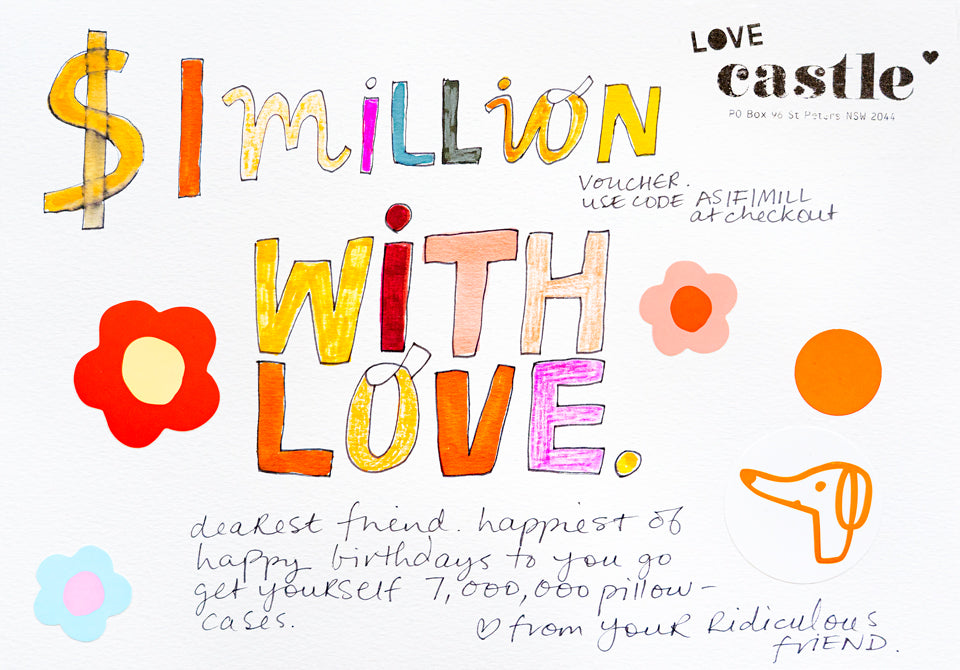 $1 million
LOVE
castle
PO Box 96 St Peters NSW 2044
VOUCHER.
USE CODE ASIF1MILL
at checkout
WiTH
LOVE.
deaRest friend. happiest of
happy birthdays to you go
get yourself 7,000,000 pillow-
cases.
♡ from youR Ridiculous
fRiEND.